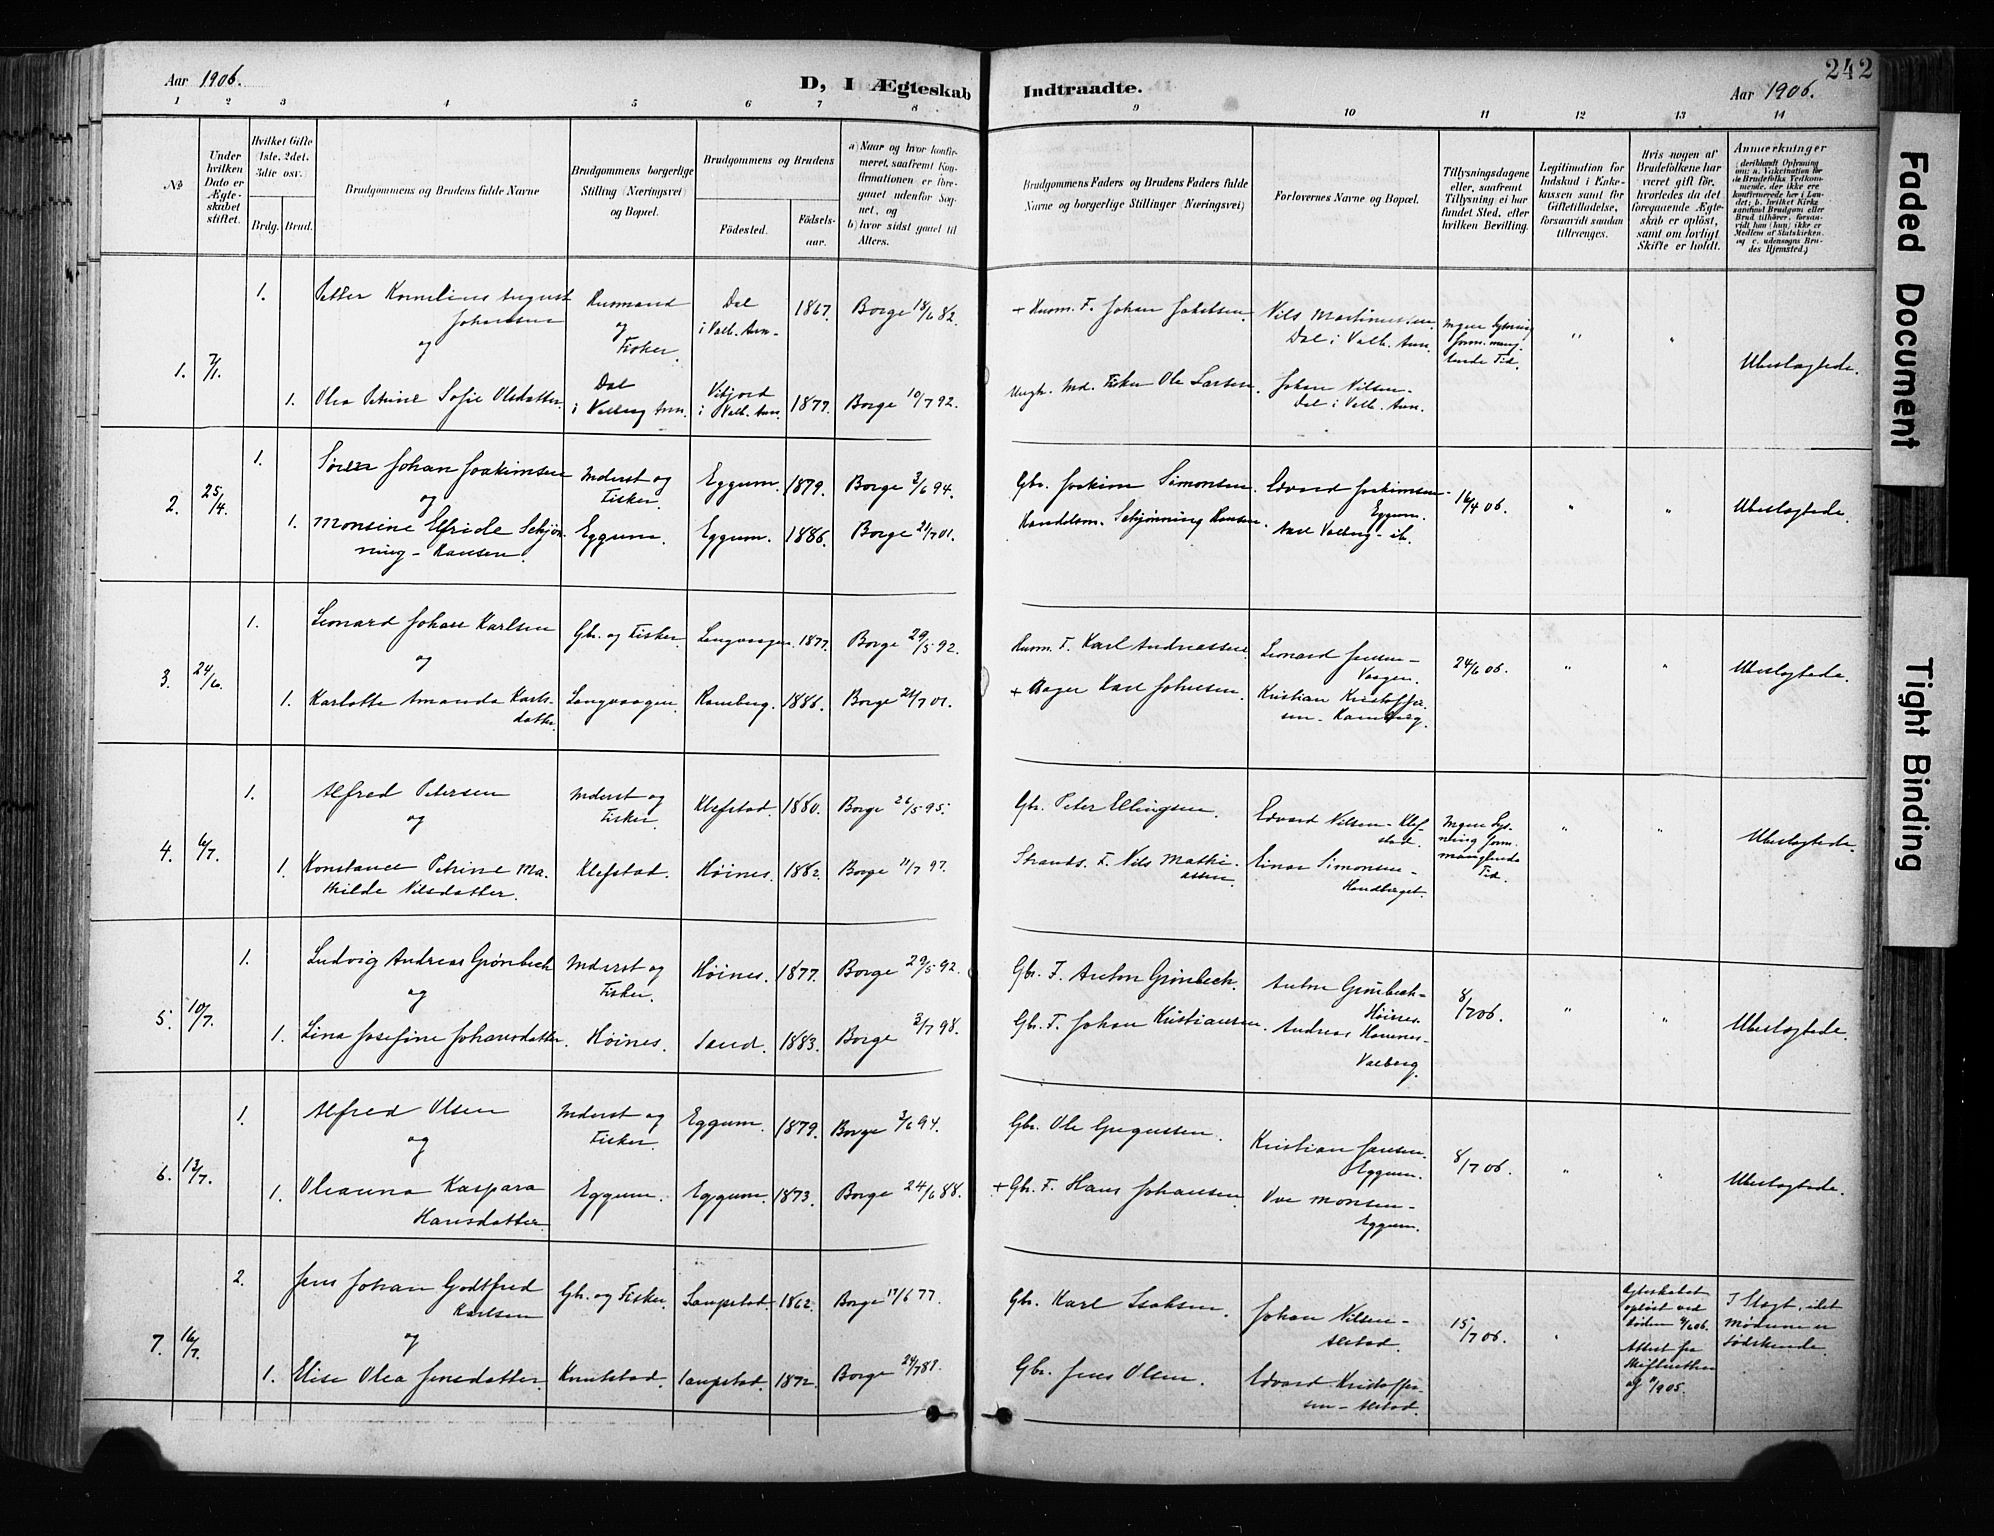 242
Aar 1906.
D, I Ægteskab Indtraadte.
Aar 1906.
1 2 3 4 5 6 7 8 9 10 11 12 13 14
№
Under hvilken Dato er Ægteskabet stiftet.
Hvilket Gifte (1ste, 2det, 3die osv.)
Brdg. Brud.
Brudgommens og Brudens fulde Navne
Brudgommens borgerlige Stilling (Næringsvei) og Bopæl.
Brudgommens og Brudens
Fødested.
Fødselsaar.
a) Naar og hvor konfirmeret, saafremt Konfirmationen er foregaaet udenfor Sognet, og
b) hvor sidst gaaet til Alters.
Brudgommens Faders og Brudens Faders fulde Navne og borgerlige Stillinger (Næringsvei)
Forlovernes Navne og Bopæl.
Tillysningsdagene eller, saafremt Tillysning ei har fundet Sted, efter hvilken Bevilling.
Legitimation for Indskud i Enkekassen samt for Giftetilladelse, forsaavidt saadan tiltrænges.
Hvis nogen af Brudefolkene har været gift før, hvorledes da det foregaaende Ægteskab er opløst, samt om lovligt Skifte er holdt.
Anmerkninger
(deriblandt Oplysning om: a. Vakcination for de Brudefolks Vedkommende, der ikke ere konfirmerede her i Landet; b. hvilket Kirkesamfund Brudgom eller Brud tilhører, forsaavidt han (hun) ikke er Medlem af Statskirken, og c. udensogns Brudes Hjemsted.)
1. 7/1.
1. Petter Kornelius August Johansen
Husmand og Fisker.
Dal i Valb. Ann.
1867.
Borge 18/6 82.
+ Husm. F. Johan Jakobsen.
Nils Martinussen Dal i Valb. Ann.
Ingen Lysning form. manglende Tid.
"
"
Ubeslægtede.
og
1. Olea Petrine Sofie Olsdatter.
Dal i Valberg Ann.
i Valb. Ann.
1877.
Borge 10/7 92.
Ungk. Md. Fisker Ole Larsen.
Johan Nilsen - Dal i Valb. Ann.
2. 25/4.
1. Sören Johan Joakimsen
Inderst og Fisker
Eggum.
1879.
Borge 3/6 94.
Gbr. Joakim Simonsen.
Edvard Joakimsen - Eggum.
16/4 06.
"
"
Ubeslægtede.
og
1. Monsine Elfride Schjönning-Hansen
Eggum.
Eggum.
1886.
Borge 21/7 01.
Handelsm. Schjönning Hansen.
Axel Valberg - ib.
3. 24/6.
1. Leonard Johan Karlsen
Gbr. og Fisker.
Langvaagen
1877.
Borge 29/5 92.
Husm. F. Karl Andreassen.
Leonard Jensen - Vaagen.
24/6 06.
"
"
Ubeslægtede.
og
1. Karlotte Amanda Karlsdatter.
Langvaagen.
Ramberg.
1886.
Borge 21/7 01.
+ Bager Karl Johnsen.
Kristian Kristoffersen - Ramberg.
4. 6/7.
1. Alfred Petersen
Inderst og Fisker.
Klefstad.
1880.
Borge 26/5 95.
Gbr. Peter Ellingsen.
Edvard Nilsen - Klefstad.
Ingen Lysning form. manglende Tid.
"
"
Ubeslægtede.
og
1. Konstance Petrine Mathilde Nilsdatter.
Klefstad.
Höines.
1882.
Borge 11/7 97.
Strands. F. Nils Mathiassen.
Einar Simonsen - Handberget.
5. 10/7.
1. Ludvig Andreas Grönbech
Inderst og Fisker.
Höines.
1877.
Borge 29/5 92.
Gbr. F. Anton Grönbech.
Anton Grönbech - Höines.
8/7 06.
"
"
Ubeslægtede.
og
1. Lina Josefine Johansdatter.
Höines.
Sand.
1883.
Borge 3/7 98.
Gbr. F. Johan Kristiansen.
Andreas Hannes - Valberg.
6. 13/7.
1. Alfred Olsen
Inderst og Fisker.
Eggum.
1879.
Borge 3/6 94.
Gbr. Ole Gregussen.
Kristian Jansen. Eggum.
8/7 06.
"
"
Ubeslægtede.
og
1. Oleanna Kaspara Hansdatter.
Eggum.
Eggum.
1873.
Borge 24/6 88.
+ Gbr. F. Hans Johansen.
Ove Monsen - Eggum.
7. 16/7.
2. Jens Johan Godtfred Karlsen
Gbr. og Fisker.
Saupstad.
1862.
Borge 17/6 77.
Gbr. Karl Isaksen.
Johan Nilsen - Alstad.
15/7 06.
"
Ægteskabet opløst ved Döden 4/6 06. Attest fra Skifteretten af 11/9 05.
I Slægt, idet Mødrene er Södskende.
og
1. Elise Olea Jensdatter.
Knutstad.
Saupstad.
1872.
Borge 24/7 87.
Gbr. Jens Olsen.
Edvard Kristoffersen - Alstad.
Faded Document
Tight Binding